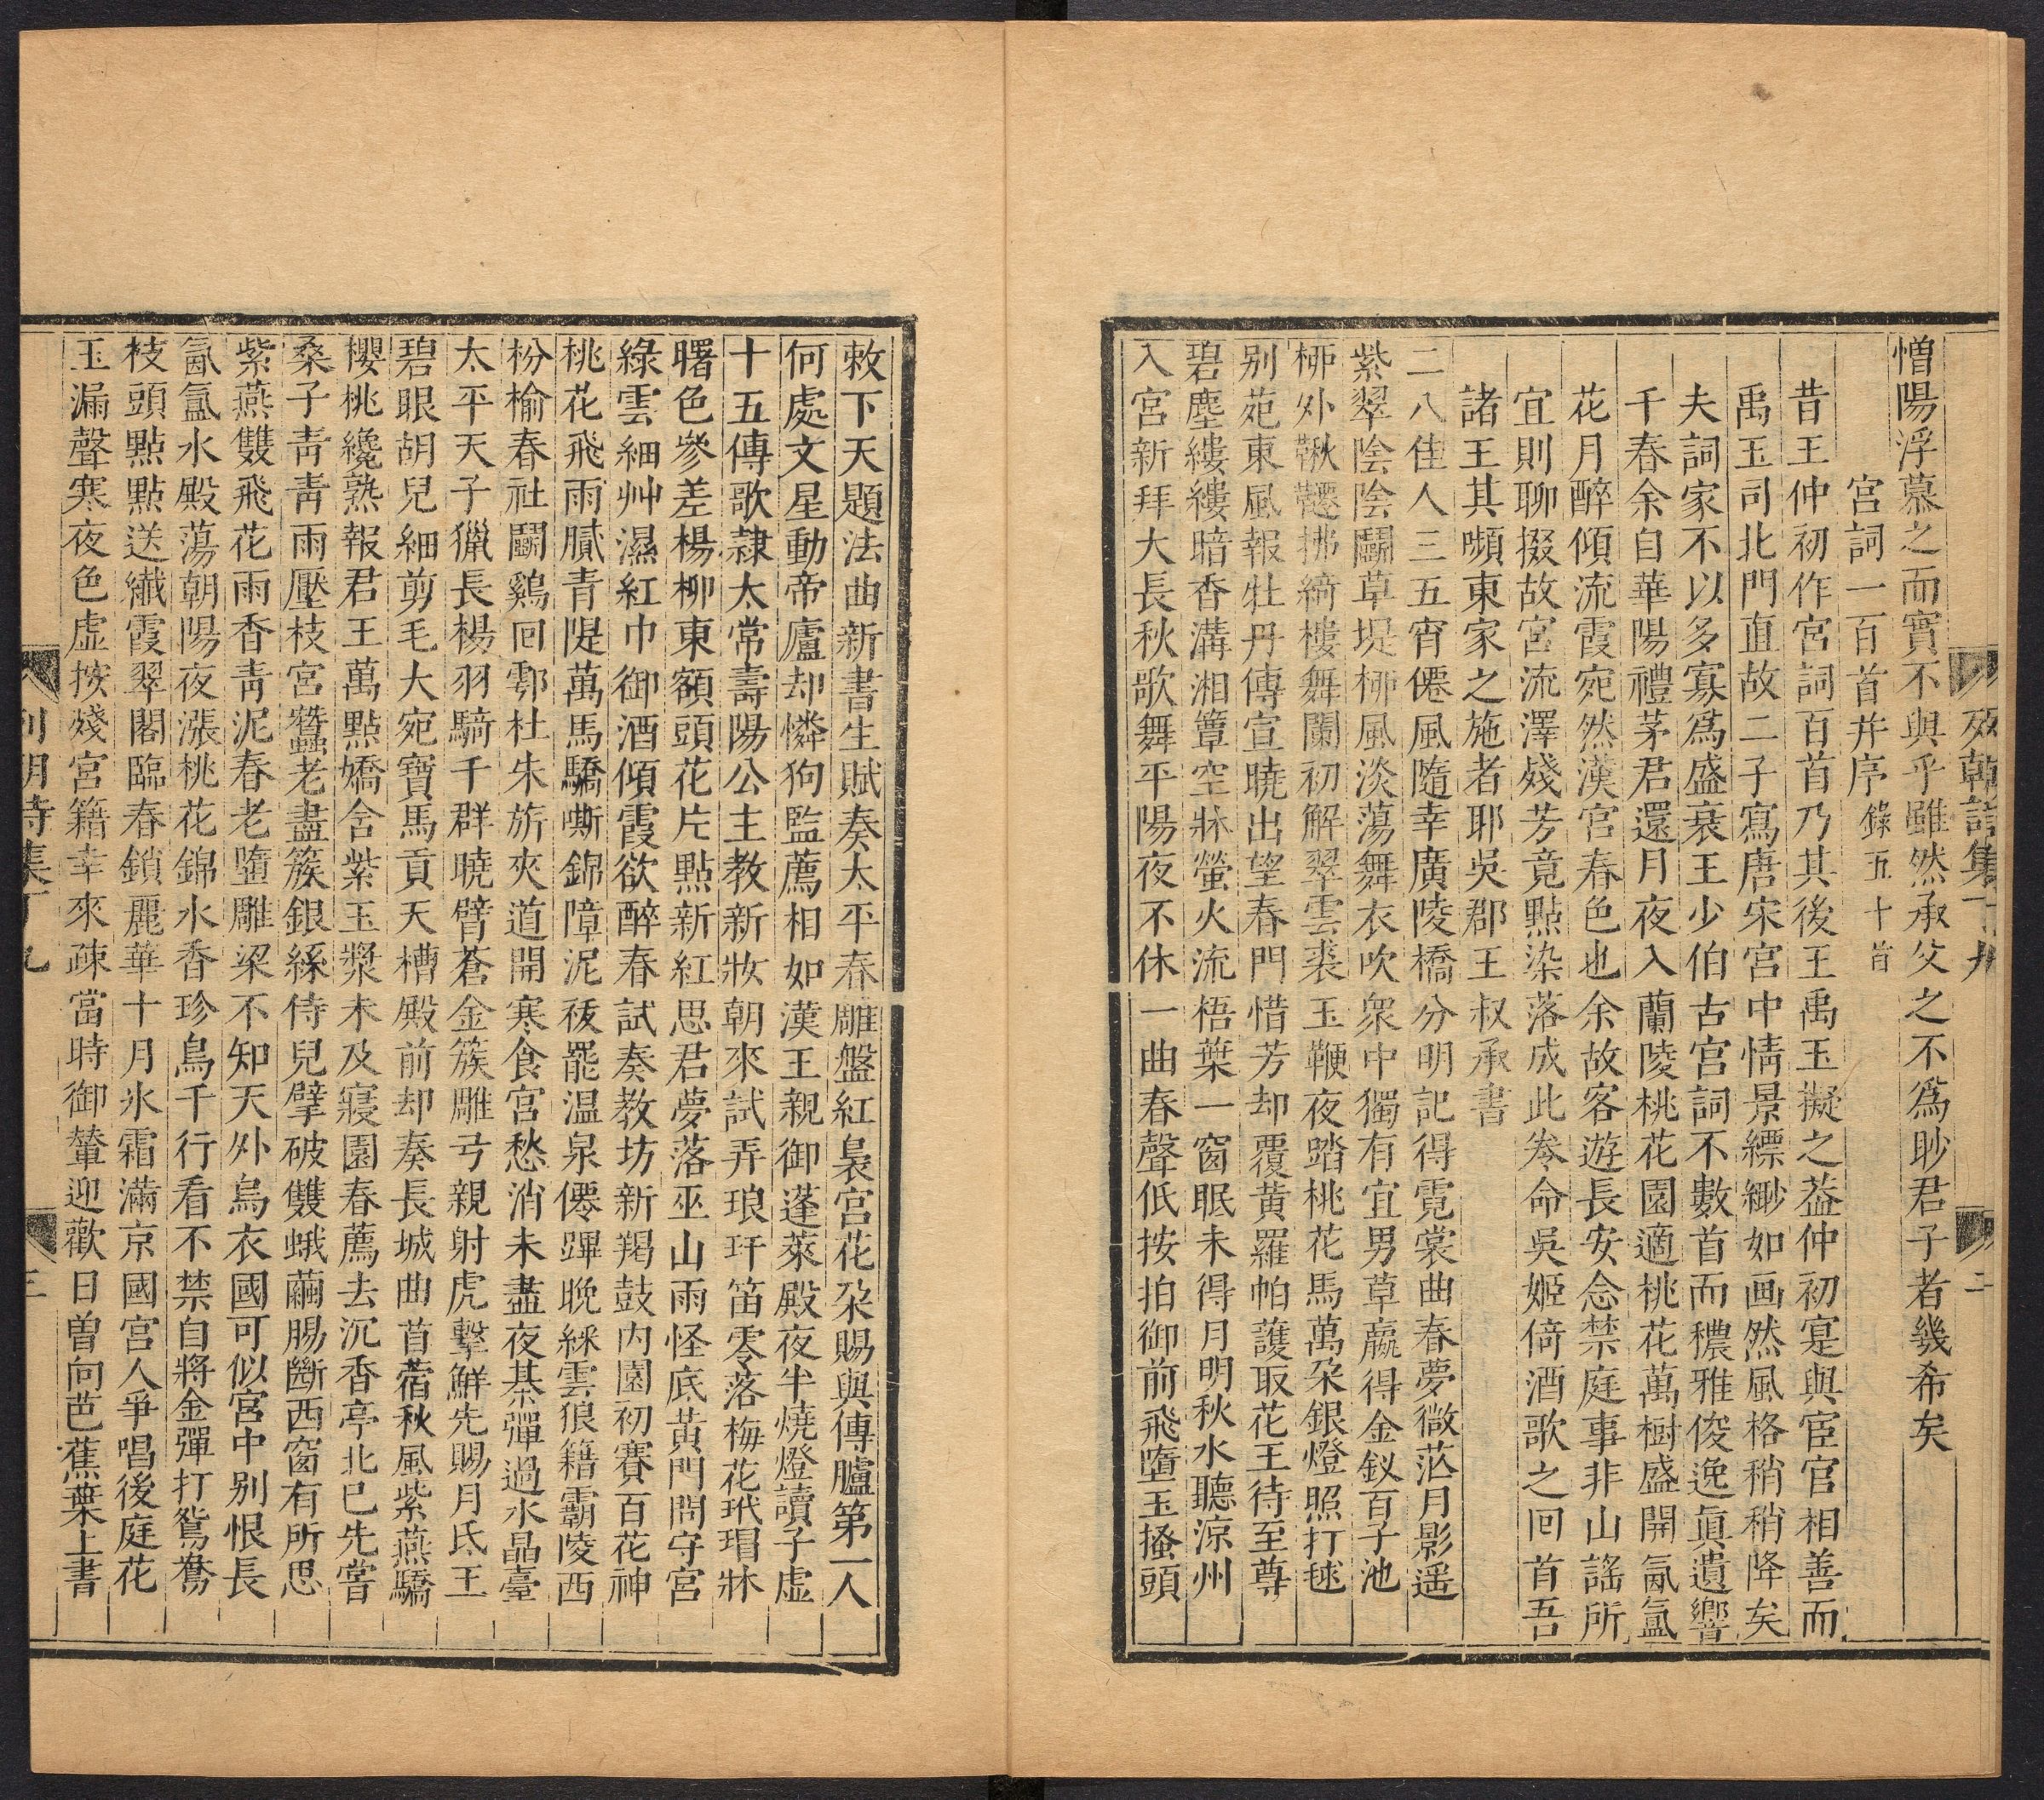 憎陽浮慕之而實不與乎雖然承父之不爲眇君子者幾希矣
宮詞一百首并序 錄五十首
昔王仲初作宮詞百首乃其後王禹玉擬之葢仲初寔與宦官相善而
禹玉司北門直故二子寫唐宋宮中情景縹緲如画然風格稍稍降矣
夫詞家不以多寡爲盛衰王少伯古宮詞不數首而穠雅俊逸眞遺響
千春余自華陽禮茅君還月夜入蘭陵桃花園適桃花萬樹盛開氤氳
花月醉傾流霞宛然漢宮春色也余故客遊長安念禁庭事非山謠所
宜則聊掇故宮流澤殘芳竟點染落成此岺命吳姬倚酒歌之回首吾
諸王其嚬東家之施者耶吳郡王叔承書
二八佳人三五宵僊風隨幸廣陵橋分明記得霓裳曲春夢微茫月影遥
紫翠陰陰鬬草堤栁風淡蕩舞衣吹衆中獨有宜男草贏得金釵百子池
栁外鞦韆拂綺樓舞闌初解翠雲裘玉鞭夜踏桃花馬萬朶銀燈照打毬
别苑東風報牡丹傳宣曉出望春門惜芳却覆黃羅帕護取花王待至尊
碧塵縷縷暗香溝湘簟空牀螢火流梧葉一窗眠未得月明秋水聽涼州
入宮新拜大長秋歌舞平陽夜不休一曲春聲低按拍御前飛墮玉搔頭
敕下天題法曲新書生賦奏太平春雕盤紅裊宮花朶賜與傳臚第一人
何處文星動帝廬却憐狗監薦相如漢王親御蓬萊殿夜半燒燈讀子虛
十五傳歌隷太常壽陽公主教新妝朝來試弄琅玕笛零落梅花玳瑁牀
曙色參差楊柳東額頭花片點新紅思君夢落巫山雨怪底黃門問守宮
綠雲細艸濕紅巾御酒傾霞欲醉春試奏教坊新羯鼓内園初賽百花神
桃花飛雨膩青隄萬馬驕嘶錦障泥祓罷温泉僊蹕晚綵雲狼籍霸陵西
枌榆春社鬬鷄回鄠杜朱旂夾道開寒食宮愁消未盡夜棊彈過水晶臺
太平天子獵長楊羽騎千群曉臂蒼金簇雕弓親射虎擊鮮先賜月氏王
碧眼胡兒細剪毛大宛寶馬貢天槽殿前却奏長城曲首蓿秋風紫燕驕
櫻桃纔熟報君王萬點嬌含紫玉漿未及寢園春薦去沉香亭北已先嘗
桑子青青雨壓枝宮蠶老盡簇銀絲侍兒擘破雙蛾繭腸斷西窗有所思
紫燕雙飛花雨香青泥春老墮雕梁不知天外烏衣國可似宮中别恨長
氤氳水殿蕩朝陽夜漲桃花錦水香珍鳥千行看不禁自將金彈打鴛鴦
枝頭點點送纖霞翠閣臨春鎖麗華十月氷霜滿京國宮人爭唱後庭花
玉漏聲寒夜色虛按殘宮籍幸來疎當時御輦迎歡日曽向芭蕉葉上書
列朝詩集丁九
三